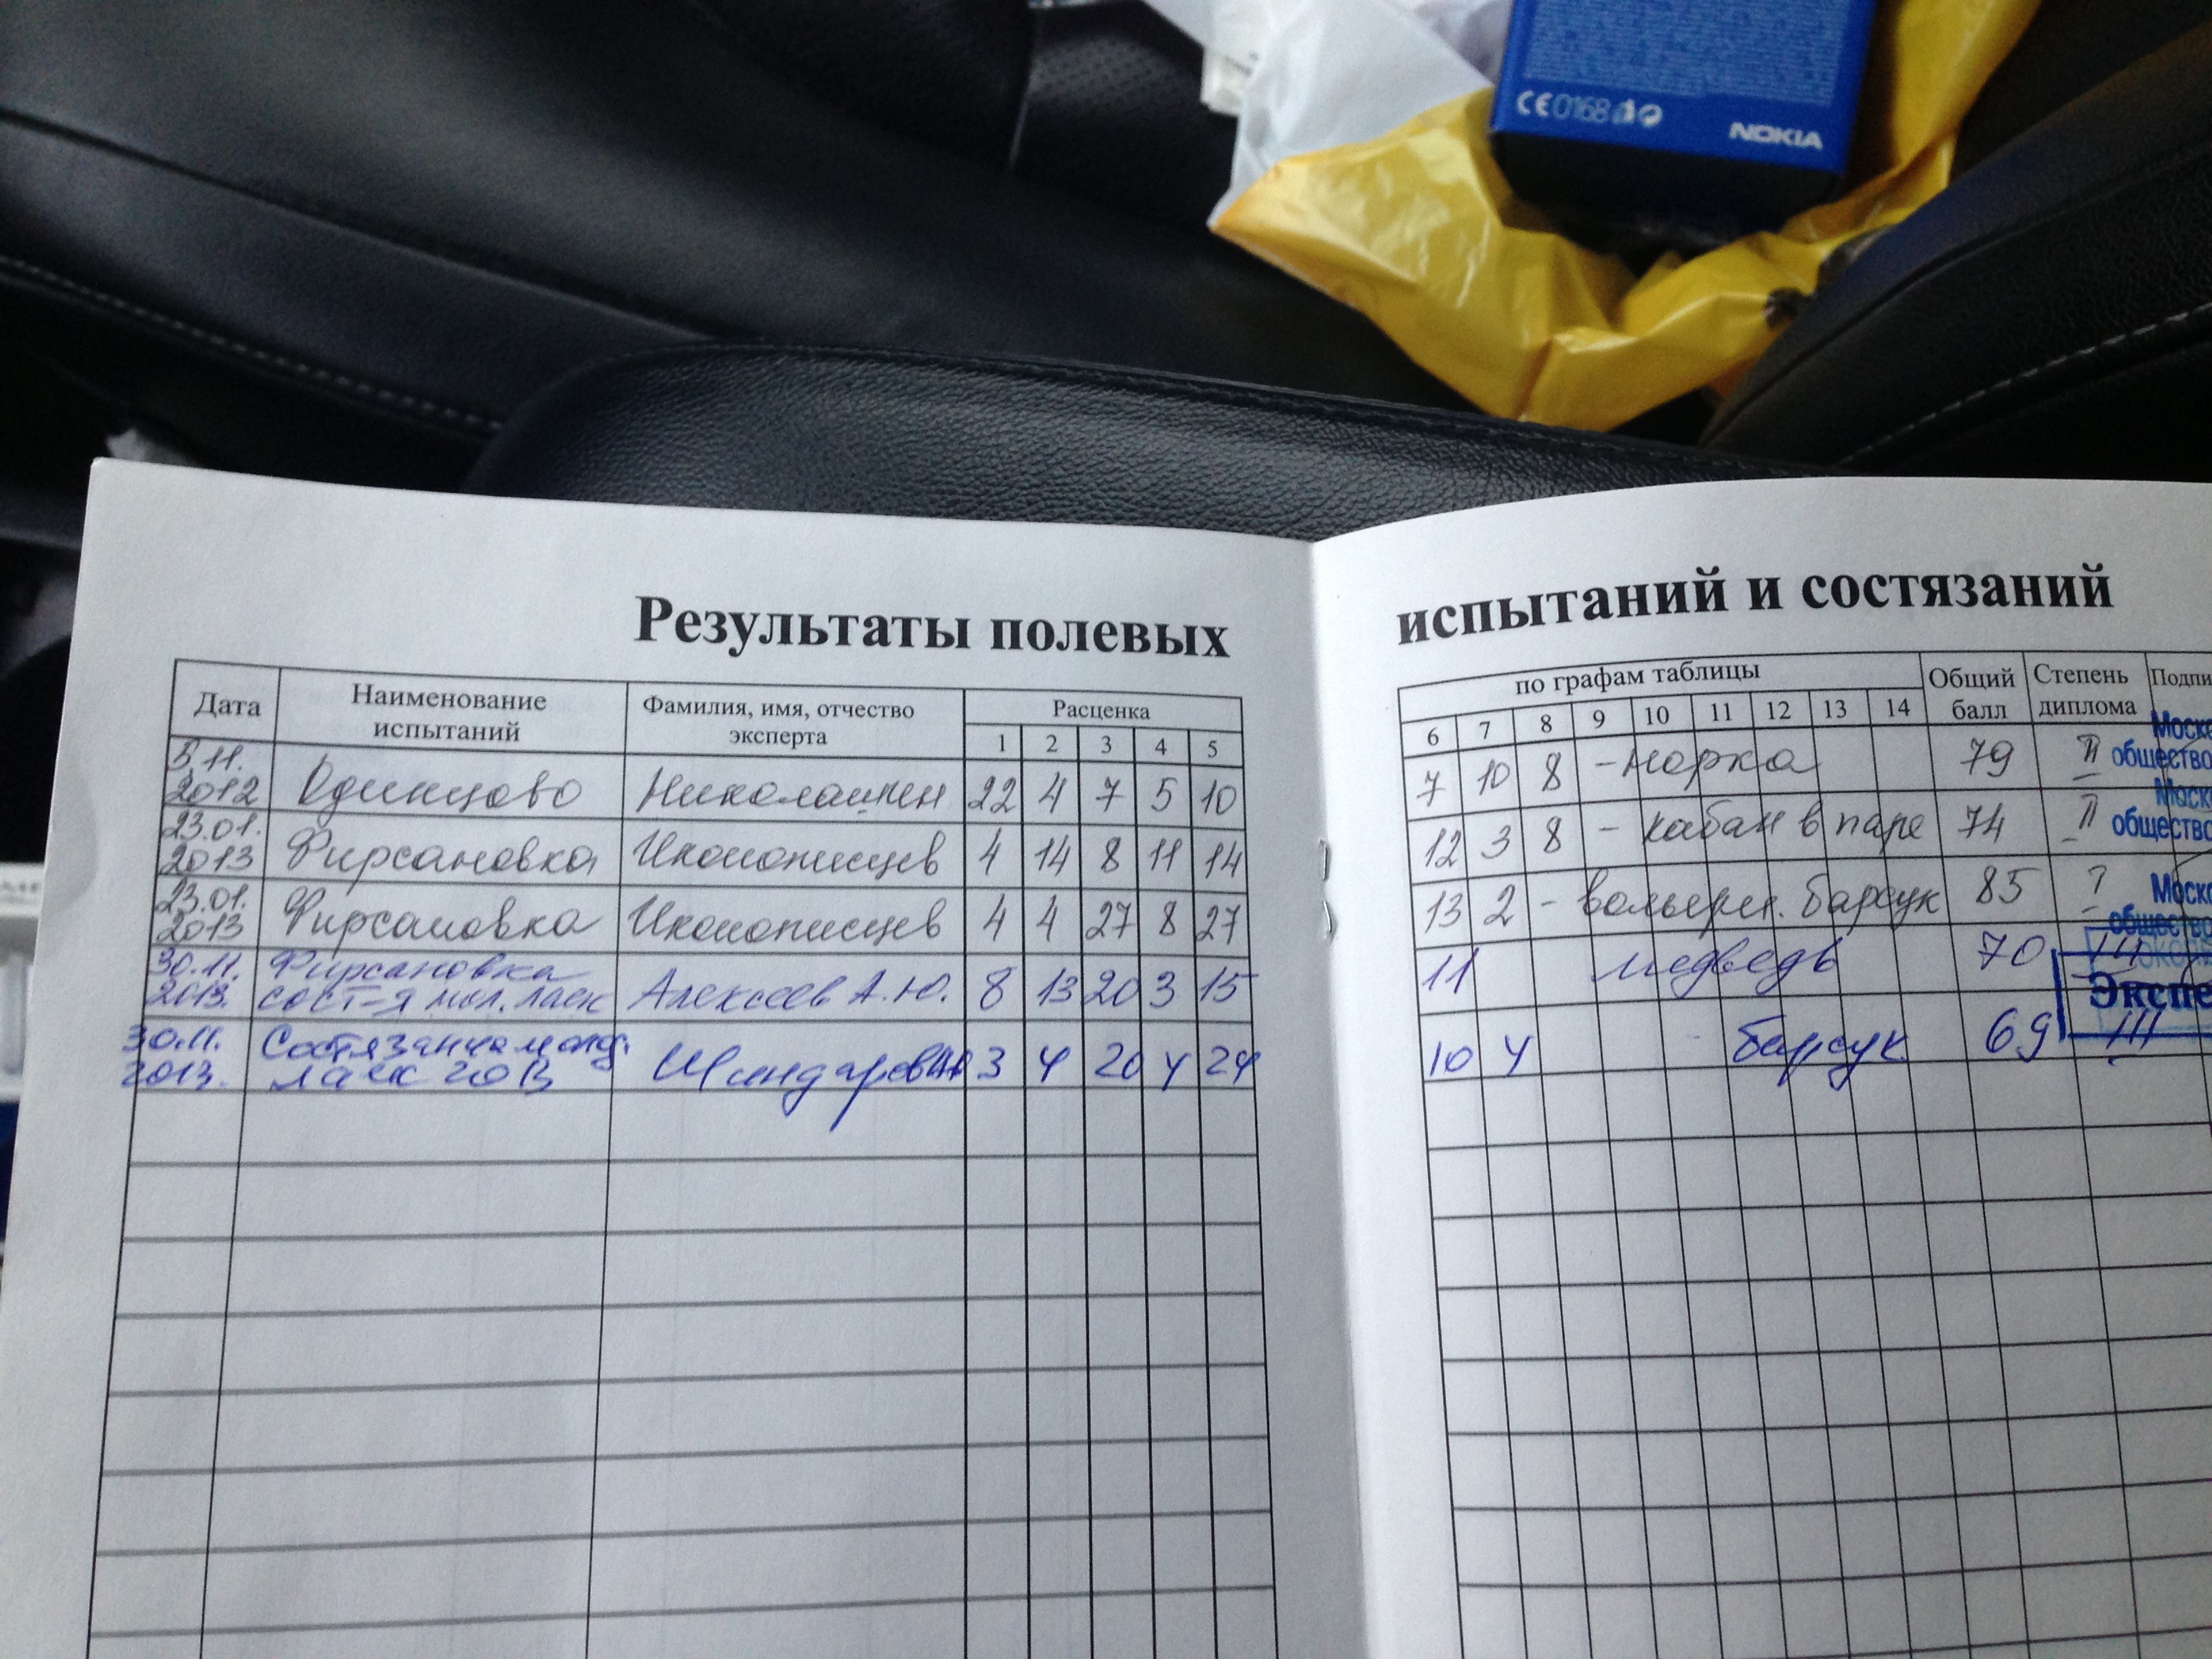 CE0168
NOKIA
Результаты полевых испытаний и состязаний
Дата Наименование испытаний Фамилия, имя, отчество эксперта Расценка по графам таблицы Общий балл Степень диплома
1 2 3 4 5 6 7 8 9 10 11 12 13 14
5.11.2012 Одинцово 22 4 7 5 10 7 10 8 - норка 79 II
23.01.2013 Фирсановка Иконописцев 4 14 8 11 14 12 3 8 - кабан в паре 74 II
23.01.2013 Фирсановка Иконописцев 4 4 27 8 27 13 2 - вольерн. барсук 85
30.11.2013. Фирсановка сост-я мол. лаек Алексеев А.Ю. 8 13 20 3 15 11 медведь 70 III
30.11.2013. Состязания молод. лаек 2013 3 4 20 4 24 10 4 - барсук 69 III